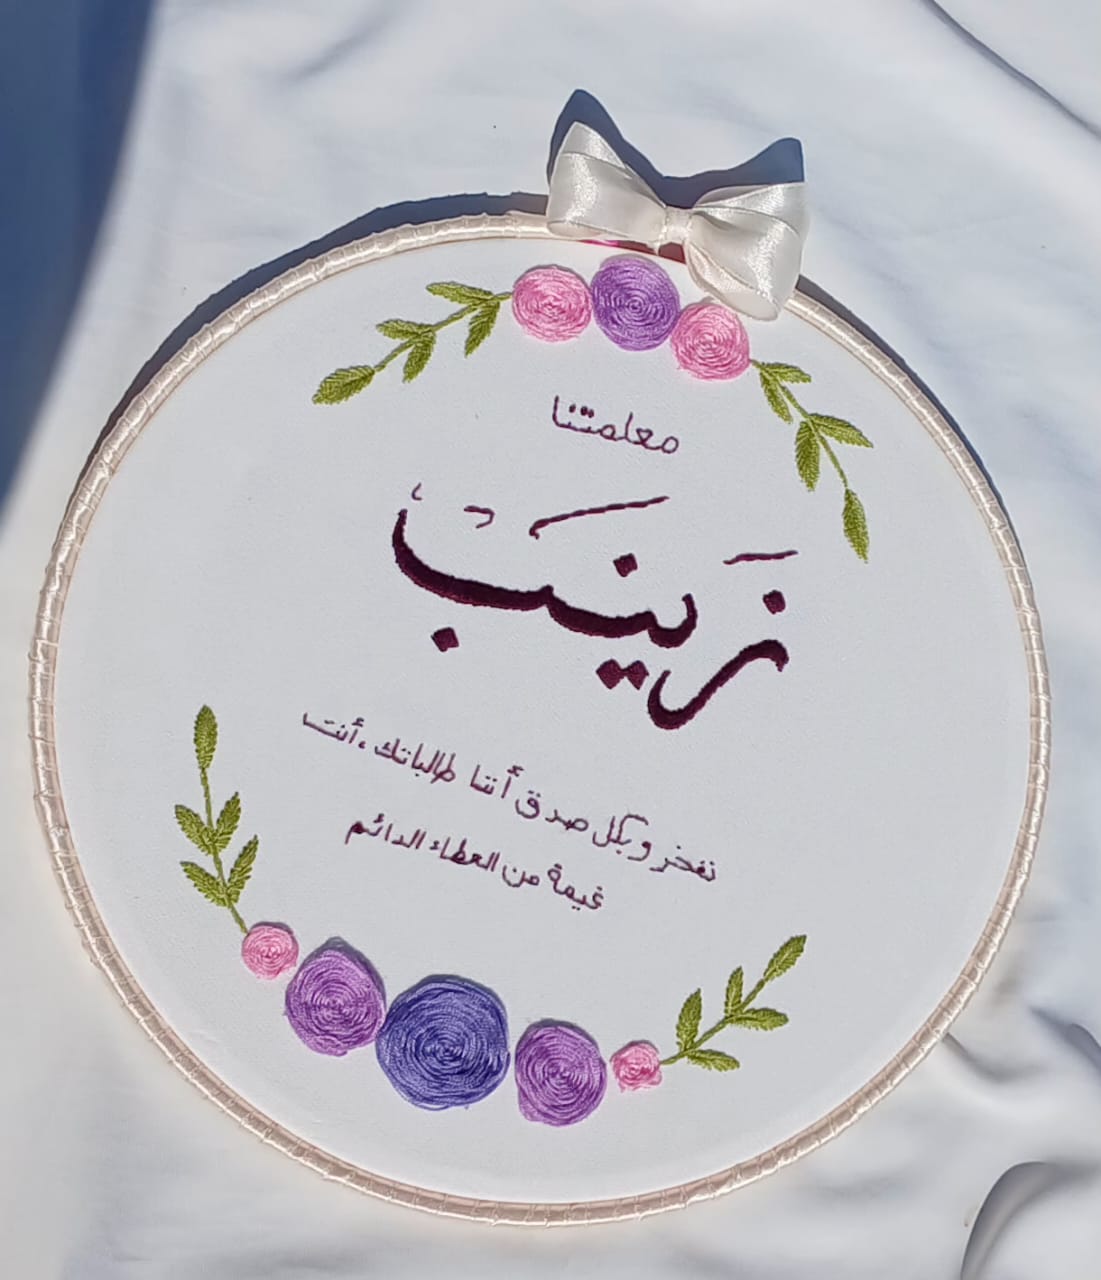 معلمتنا
زَينَب
نفخر وبكل صدق أننا طالباتك ، أنت
غيمة من العطاء الدائم